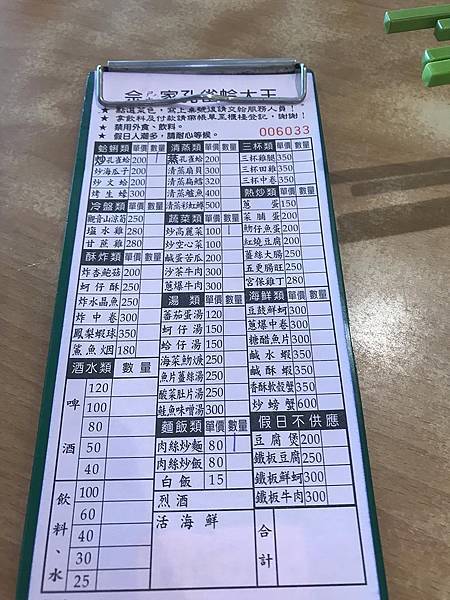 家孔雀蛤大王
★ 點選菜色，寫上桌號後請交給服務人員！
★ 拿飲料及付款請帶帳單至櫃檯登記，謝謝！
★ 禁用外食、飲料。
★ 假日人潮多，請耐心等候。
006033
蛤蜊類 單價 數量
炒孔雀蛤 200
炒海瓜子 200
炒文蛤 200
烤生蠔 300
冷盤類 單價 數量
觀音山涼筍 250
塩水雞 280
甘蔗雞 280
酥炸類 單價 數量
炸杏鮑菇 200
蚵仔酥 250
炸水晶魚 250
炸中卷 300
鳳梨蝦球 350
鯊魚烟 180
酒水類 數量
啤酒
120
100
80
50
40
飲料、水
100
60
40
30
25
清蒸類 單價 數量
蒸孔雀蛤 200
清蒸扇貝 300
清蒸扁鱈 320
清蒸鱸魚 400
清蒸彩虹鱒 500
蔬菜類 單價 數量
炒高麗菜 100
炒空心菜 100
鹹蛋苦瓜 200
沙茶牛肉 300
蔥爆牛肉 300
湯類 單價 數量
蕃茄蛋湯 120
蚵仔湯 150
蛤仔湯 150
海菜魩鱙 250
魚片薑絲湯 250
酸菜肚片湯 250
鮭魚味噌湯 300
麵飯類 單價 數量
肉絲炒麵 80
肉絲炒飯 80
白飯 15
烈酒
活海鮮
三杯類 單價 數量
三杯雞腿 350
三杯田雞 350
三杯中卷 350
熱炒類 單價 數量
蔥蛋 150
菜脯蛋 200
魩仔魚蛋 200
紅燒豆腐 200
薑絲大腸 250
五更腸旺 250
宮保雞丁 280
海鮮類 單價 數量
豆鼓鮮蚵 300
蔥爆中卷 300
糖醋魚片 300
鹹水蝦 350
鹹酥蝦 350
香酥軟殼蟹 350
炒螃蟹 600
假日不供應
豆腐煲 200
鐵板豆腐 250
鐵板鮮蚵 300
鐵板牛肉 300
合計